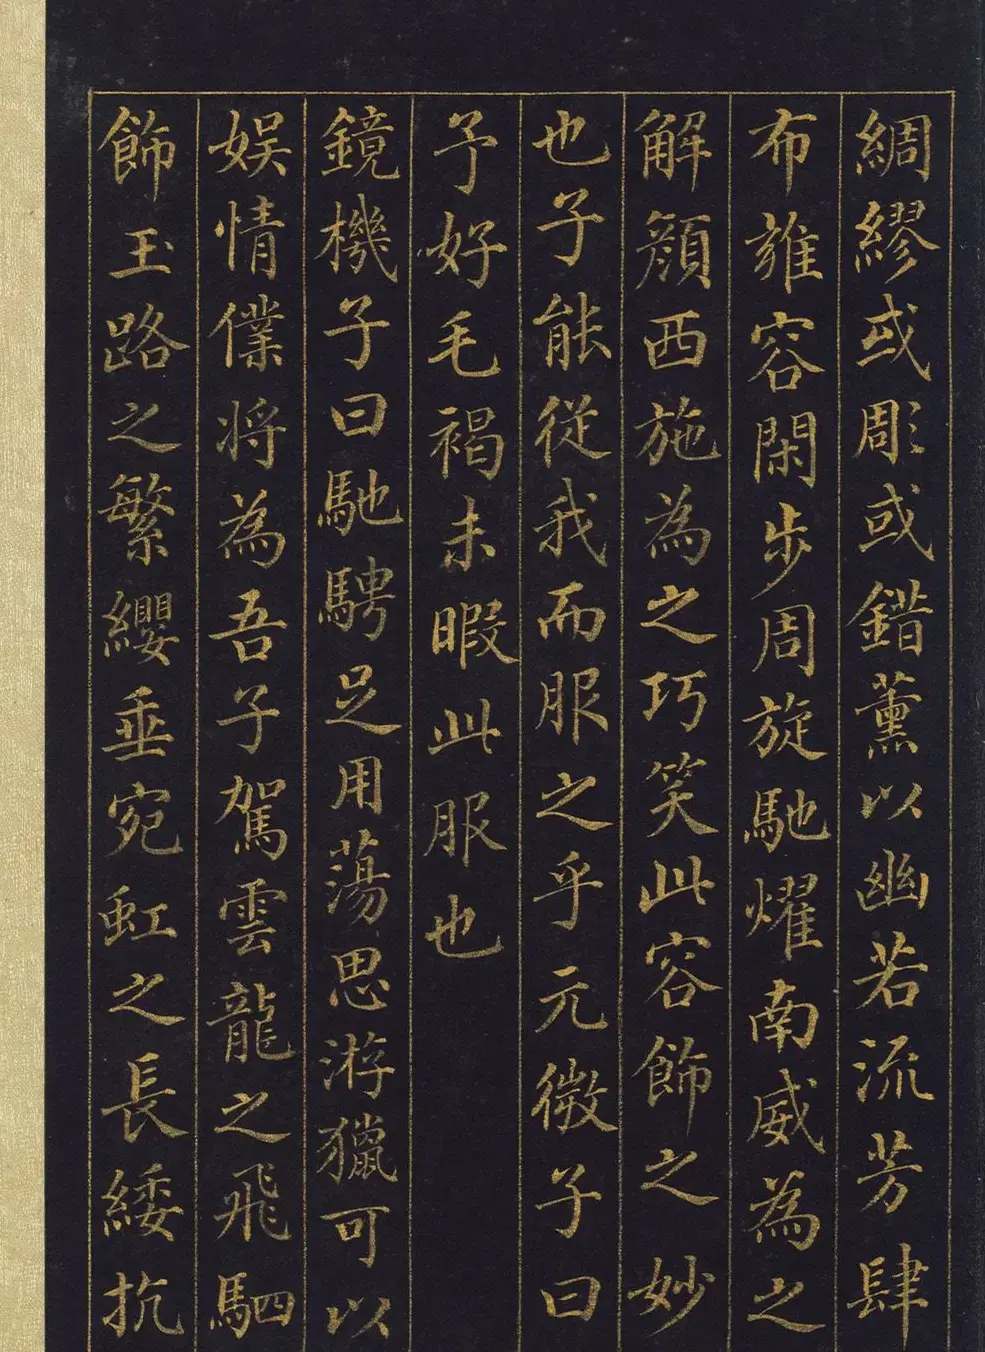 綢繆或彫或錯薰以幽若流芳肆
布雍容閑步周旋馳燿南威為之
解顏西施為之巧笑此容飾之妙
也子能從我而服之乎元微子曰
予好毛褐未暇此服也
鏡機子曰馳騁足用蕩思游獵可以
娛情僕將為吾子駕雲龍之飛駟
飾玉路之繁纓垂宛虹之長緌抗